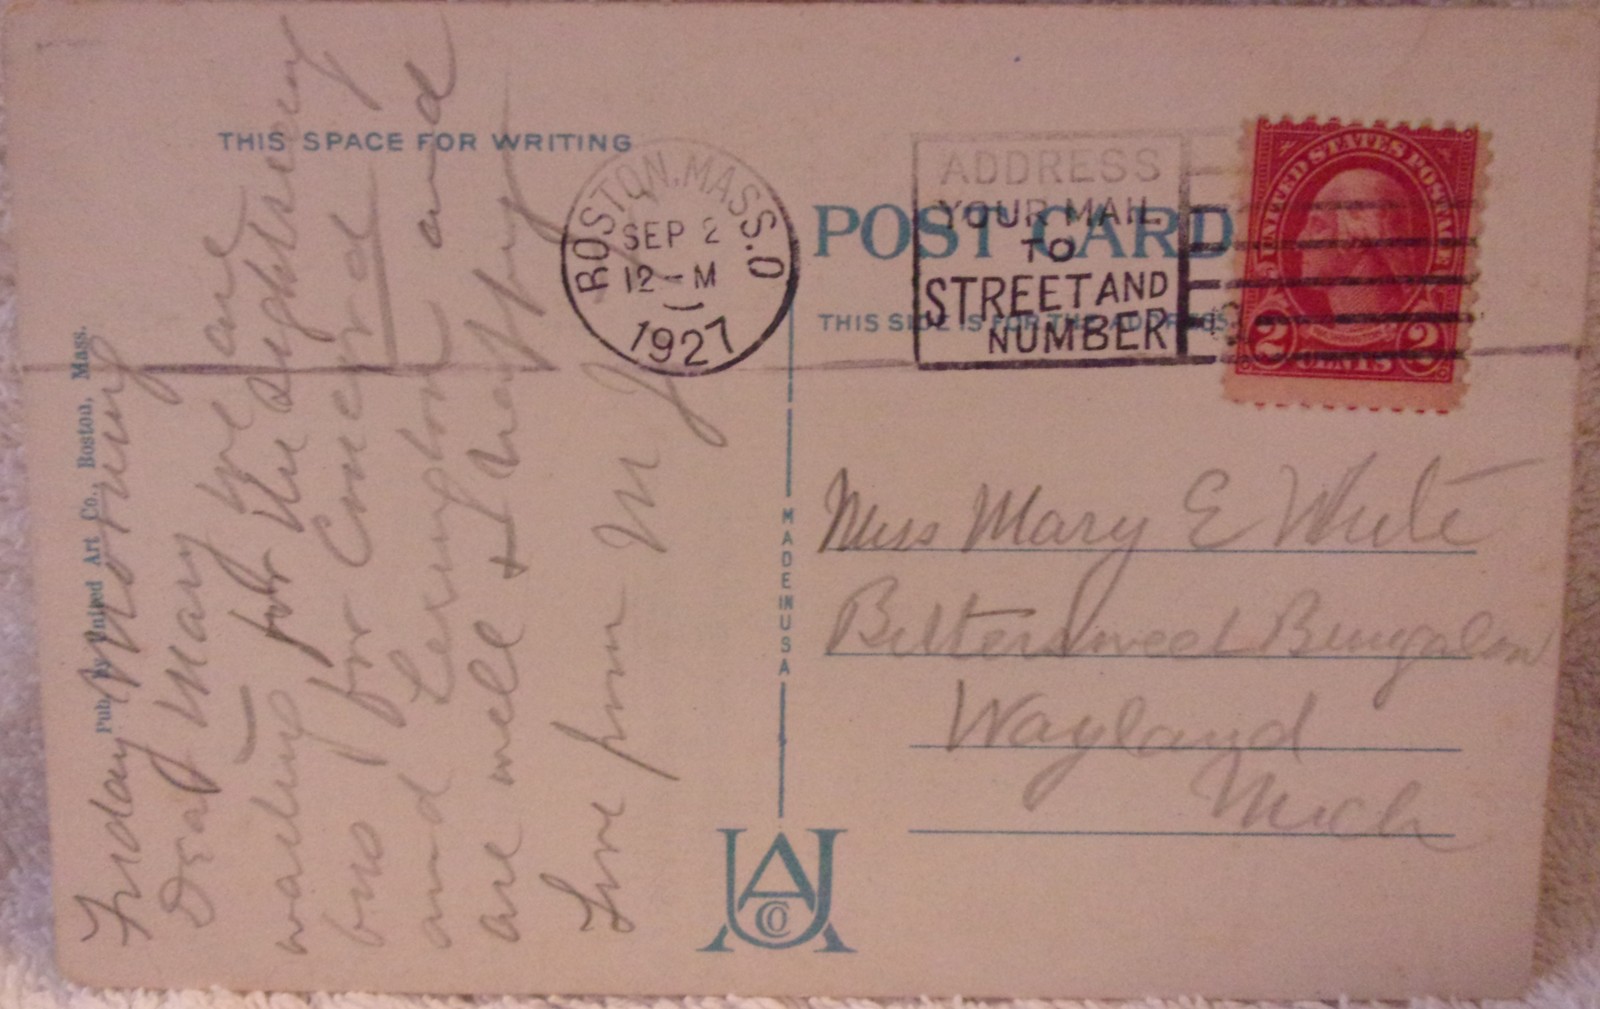 THIS SPACE FOR WRITING
BOSTON, MASS. O
SEP 2
12-M
1927
ADDRESS
YOUR MAIL
TO
STREET AND
NUMBER
POST CARD
THIS SIDE IS FOR THE ADDRESS
UNITED STATES POSTAGE
2 CENTS 2
Pub. by United Art Co., Boston, Mass.
Friday Morning
Dear Mary - We are
waiting for the sightseeing
bus for Concord and
and Lexington and
are well & happy
Love from M J
MADE IN USA
UACO
Miss Mary E White
Bittersweet Bungalow
Wayland
Mich